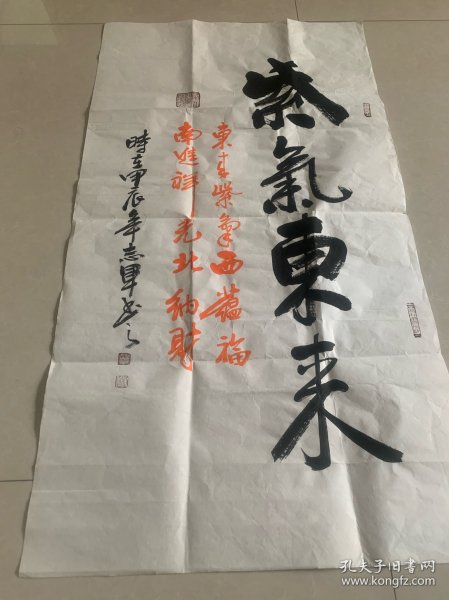 紫氣東来
東来紫氣西蘊福
南進祥光北納財
時在甲辰年志軍書之
孔夫子旧书网
www.kongfz.com